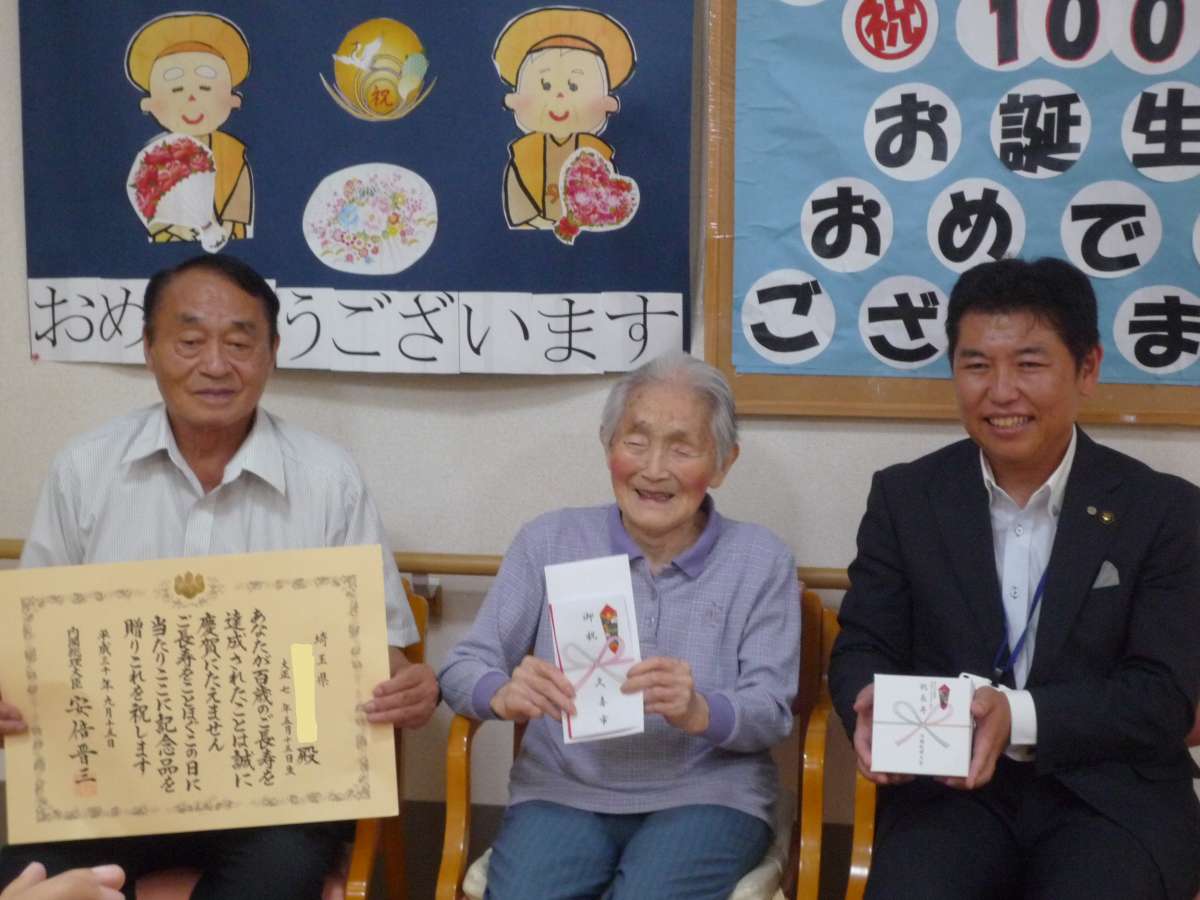 祝
おめ うございます
祝100
お誕生
おめで
ござ ま
埼玉県
殿
大正七年五月十五日生
あなたが百歳のご長寿を
達成されたことは誠に
慶賀にたえません
ご長寿をことほぐこの日に
当たりここに記念品を
贈りこれを祝します
平成三十年九月十五日
内閣総理大臣 安倍晋三
御祝
久喜市